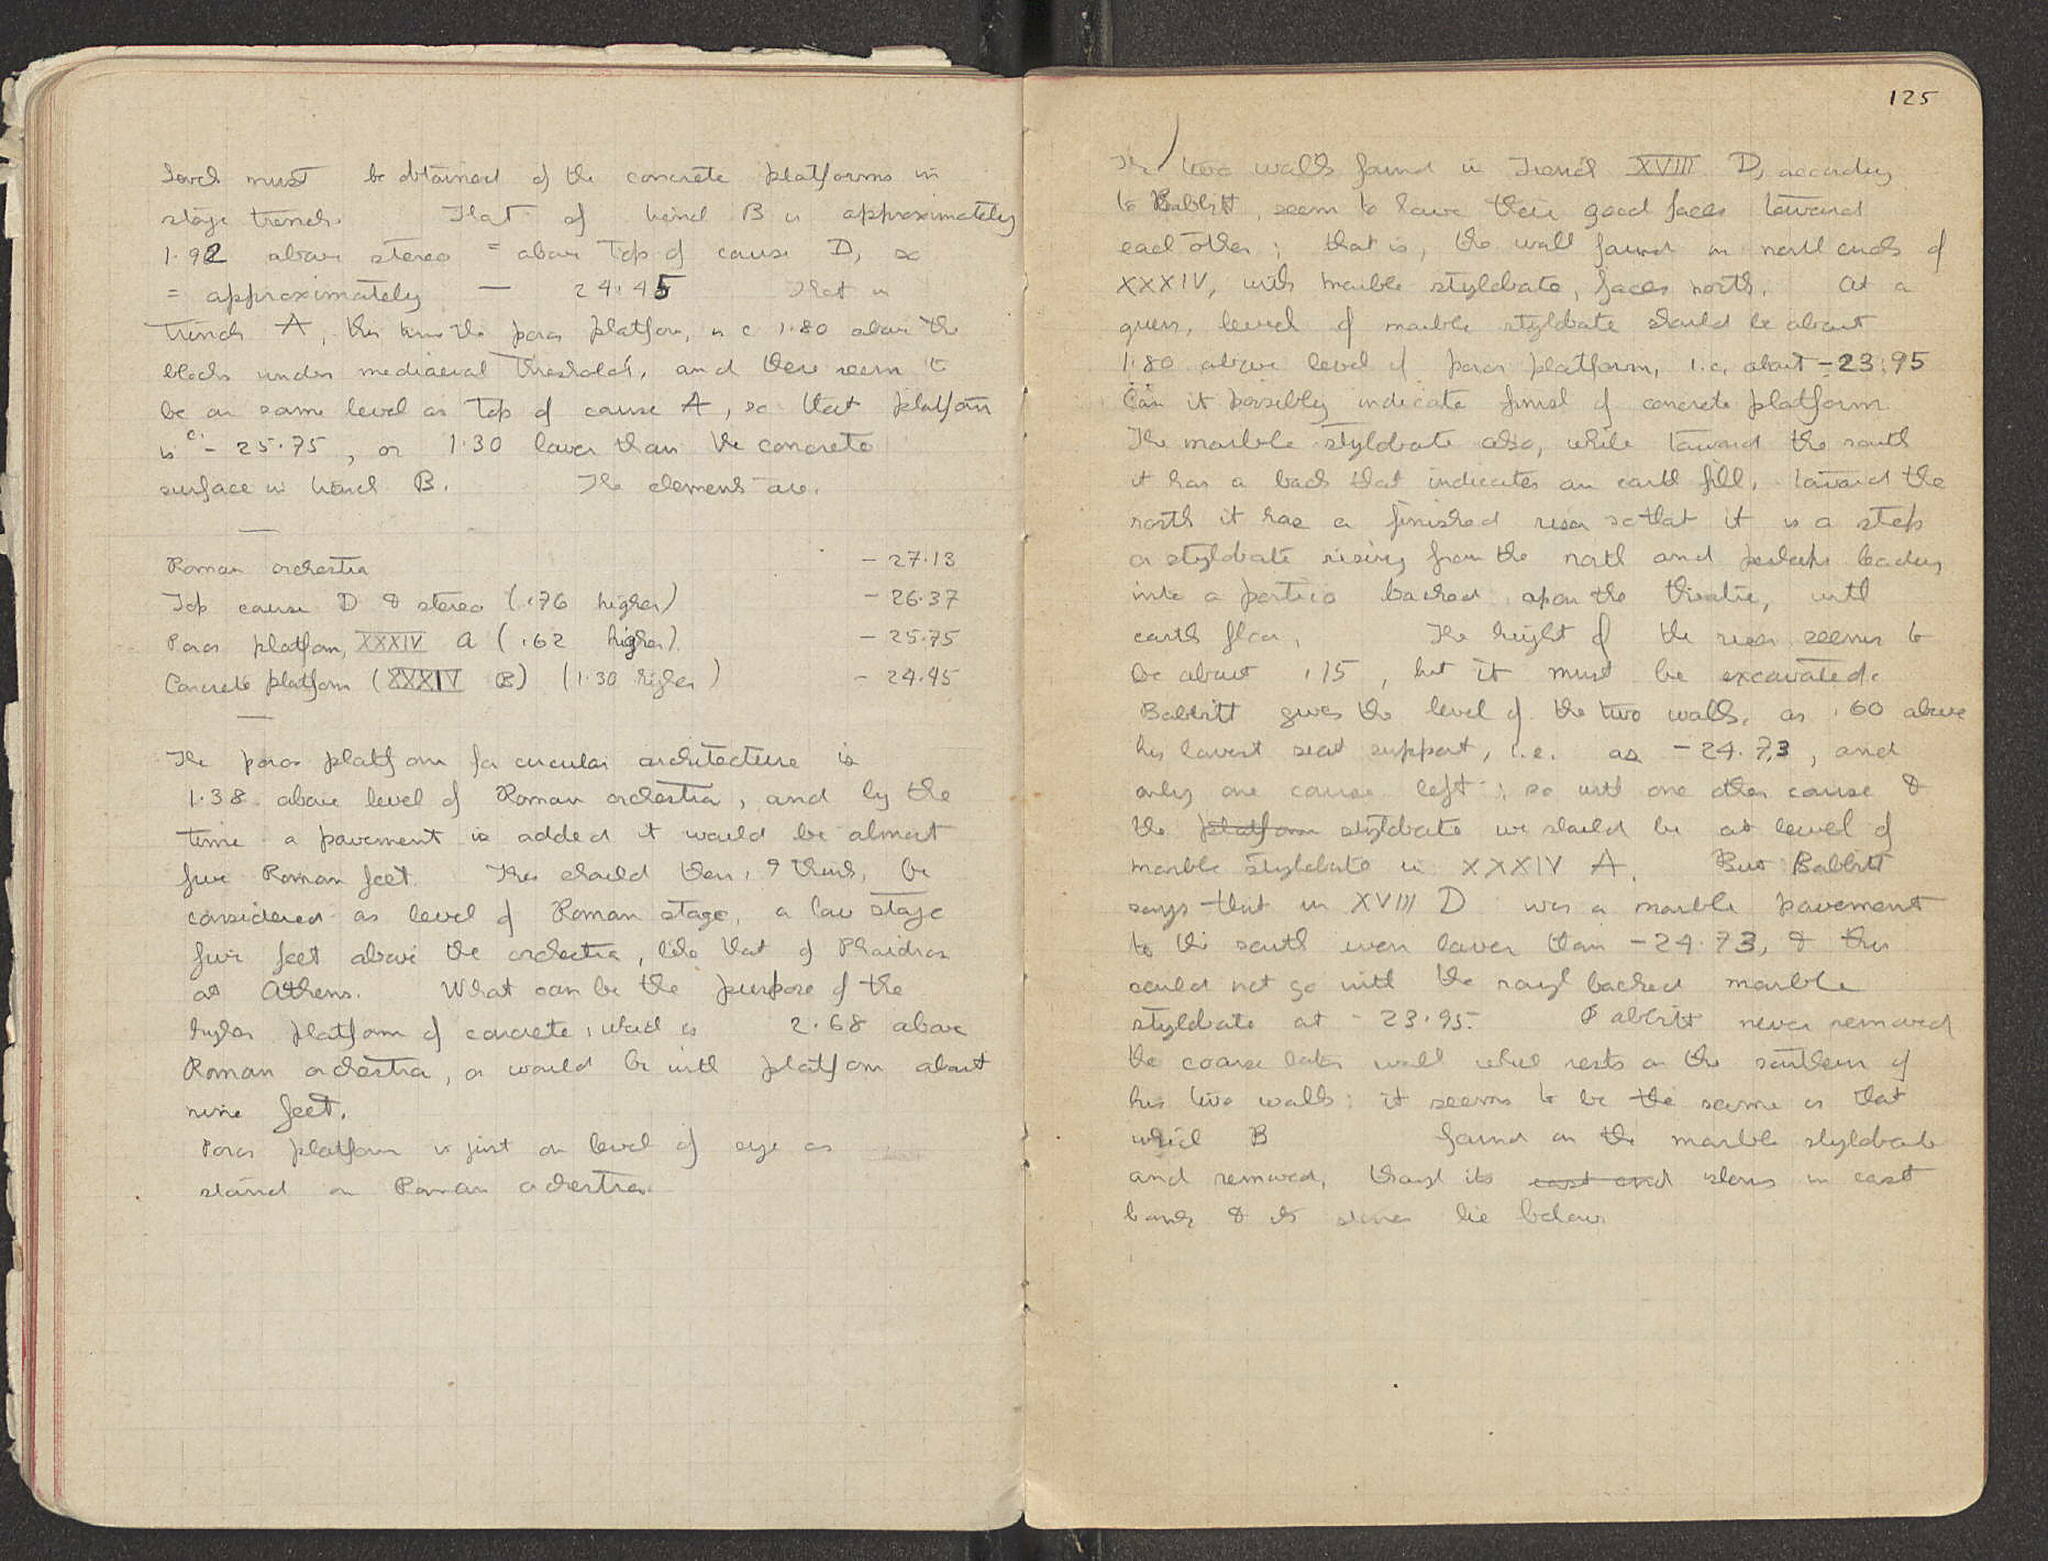 Levels must be obtained of the concrete platforms in
stage trench. That of trench B is approximately
1.92 above stereo = above top of course D, so
= approximately — 24.45 That in
trench A, this time the poros platform, is c 1.80 above the
blocks under mediaeval threshold, and these seem to
be on same level as top of course A, so that platform
is c. - 25.75, or 1.30 lower than the concrete
surface in trench B. The elements are.
—
Roman orchestra - 27.13
Top course D & stereo (.76 higher) - 26.37
Poros platform, XXXIV A (.62 higher) - 25.75
Concrete platform (XXXIV B) (1.30 higher) - 24.45
—
The poros platform for circular architecture is
1.38 above level of Roman orchestra, and by the
time a pavement is added it would be almost
five Roman feet. This should then, I think, be
considered as level of Roman stage, a low stage
five feet above the orchestra, like that of Phaidros
at Athens. What can be the purpose of the
higher platform of concrete, which is 2.68 above
Roman orchestra, or would be with platform about
nine feet.
Poros platform is just on level of eye as
stand on Roman orchestra.
125
The two walls found in Trench XVIII D, according
to Babbitt, seem to have their good faces toward
each other; that is, the wall found in north ends of
XXXIV, with marble stylobate, faces north. At a
guess, level of marble stylobate should be about
1.80 above level of poros platform, i.e. about - 23.95
Can it possibly indicate finish of concrete platform
The marble stylobate also, while toward the south
it has a back that indicates an earth fill, toward the
north it has a finished riser so that it is a step
or stylobate rising from the north and perhaps leading
into a portico backed upon the theatre, with
earth floor. The height of the riser seems to
be about .15, but it must be excavated.
Babbitt gives the level of the two walls, as .60 above
his lowest seat support, i.e. as - 24.73, and
only one course left; so with one other course &
the platform stylobate we should be at level of
marble stylobate in XXXIV A. But Babbitt
says that in XVIII D was a marble pavement
to the south even lower than - 24.73, & this
could not go with the rough backed marble
stylobate at - 23.95. Babbitt never removed
the coarse later wall which rests on the southern of
his two walls; it seems to be the same as that
which B found on the marble stylobate
and removed, though its east end shows in east
bank & its stones lie below